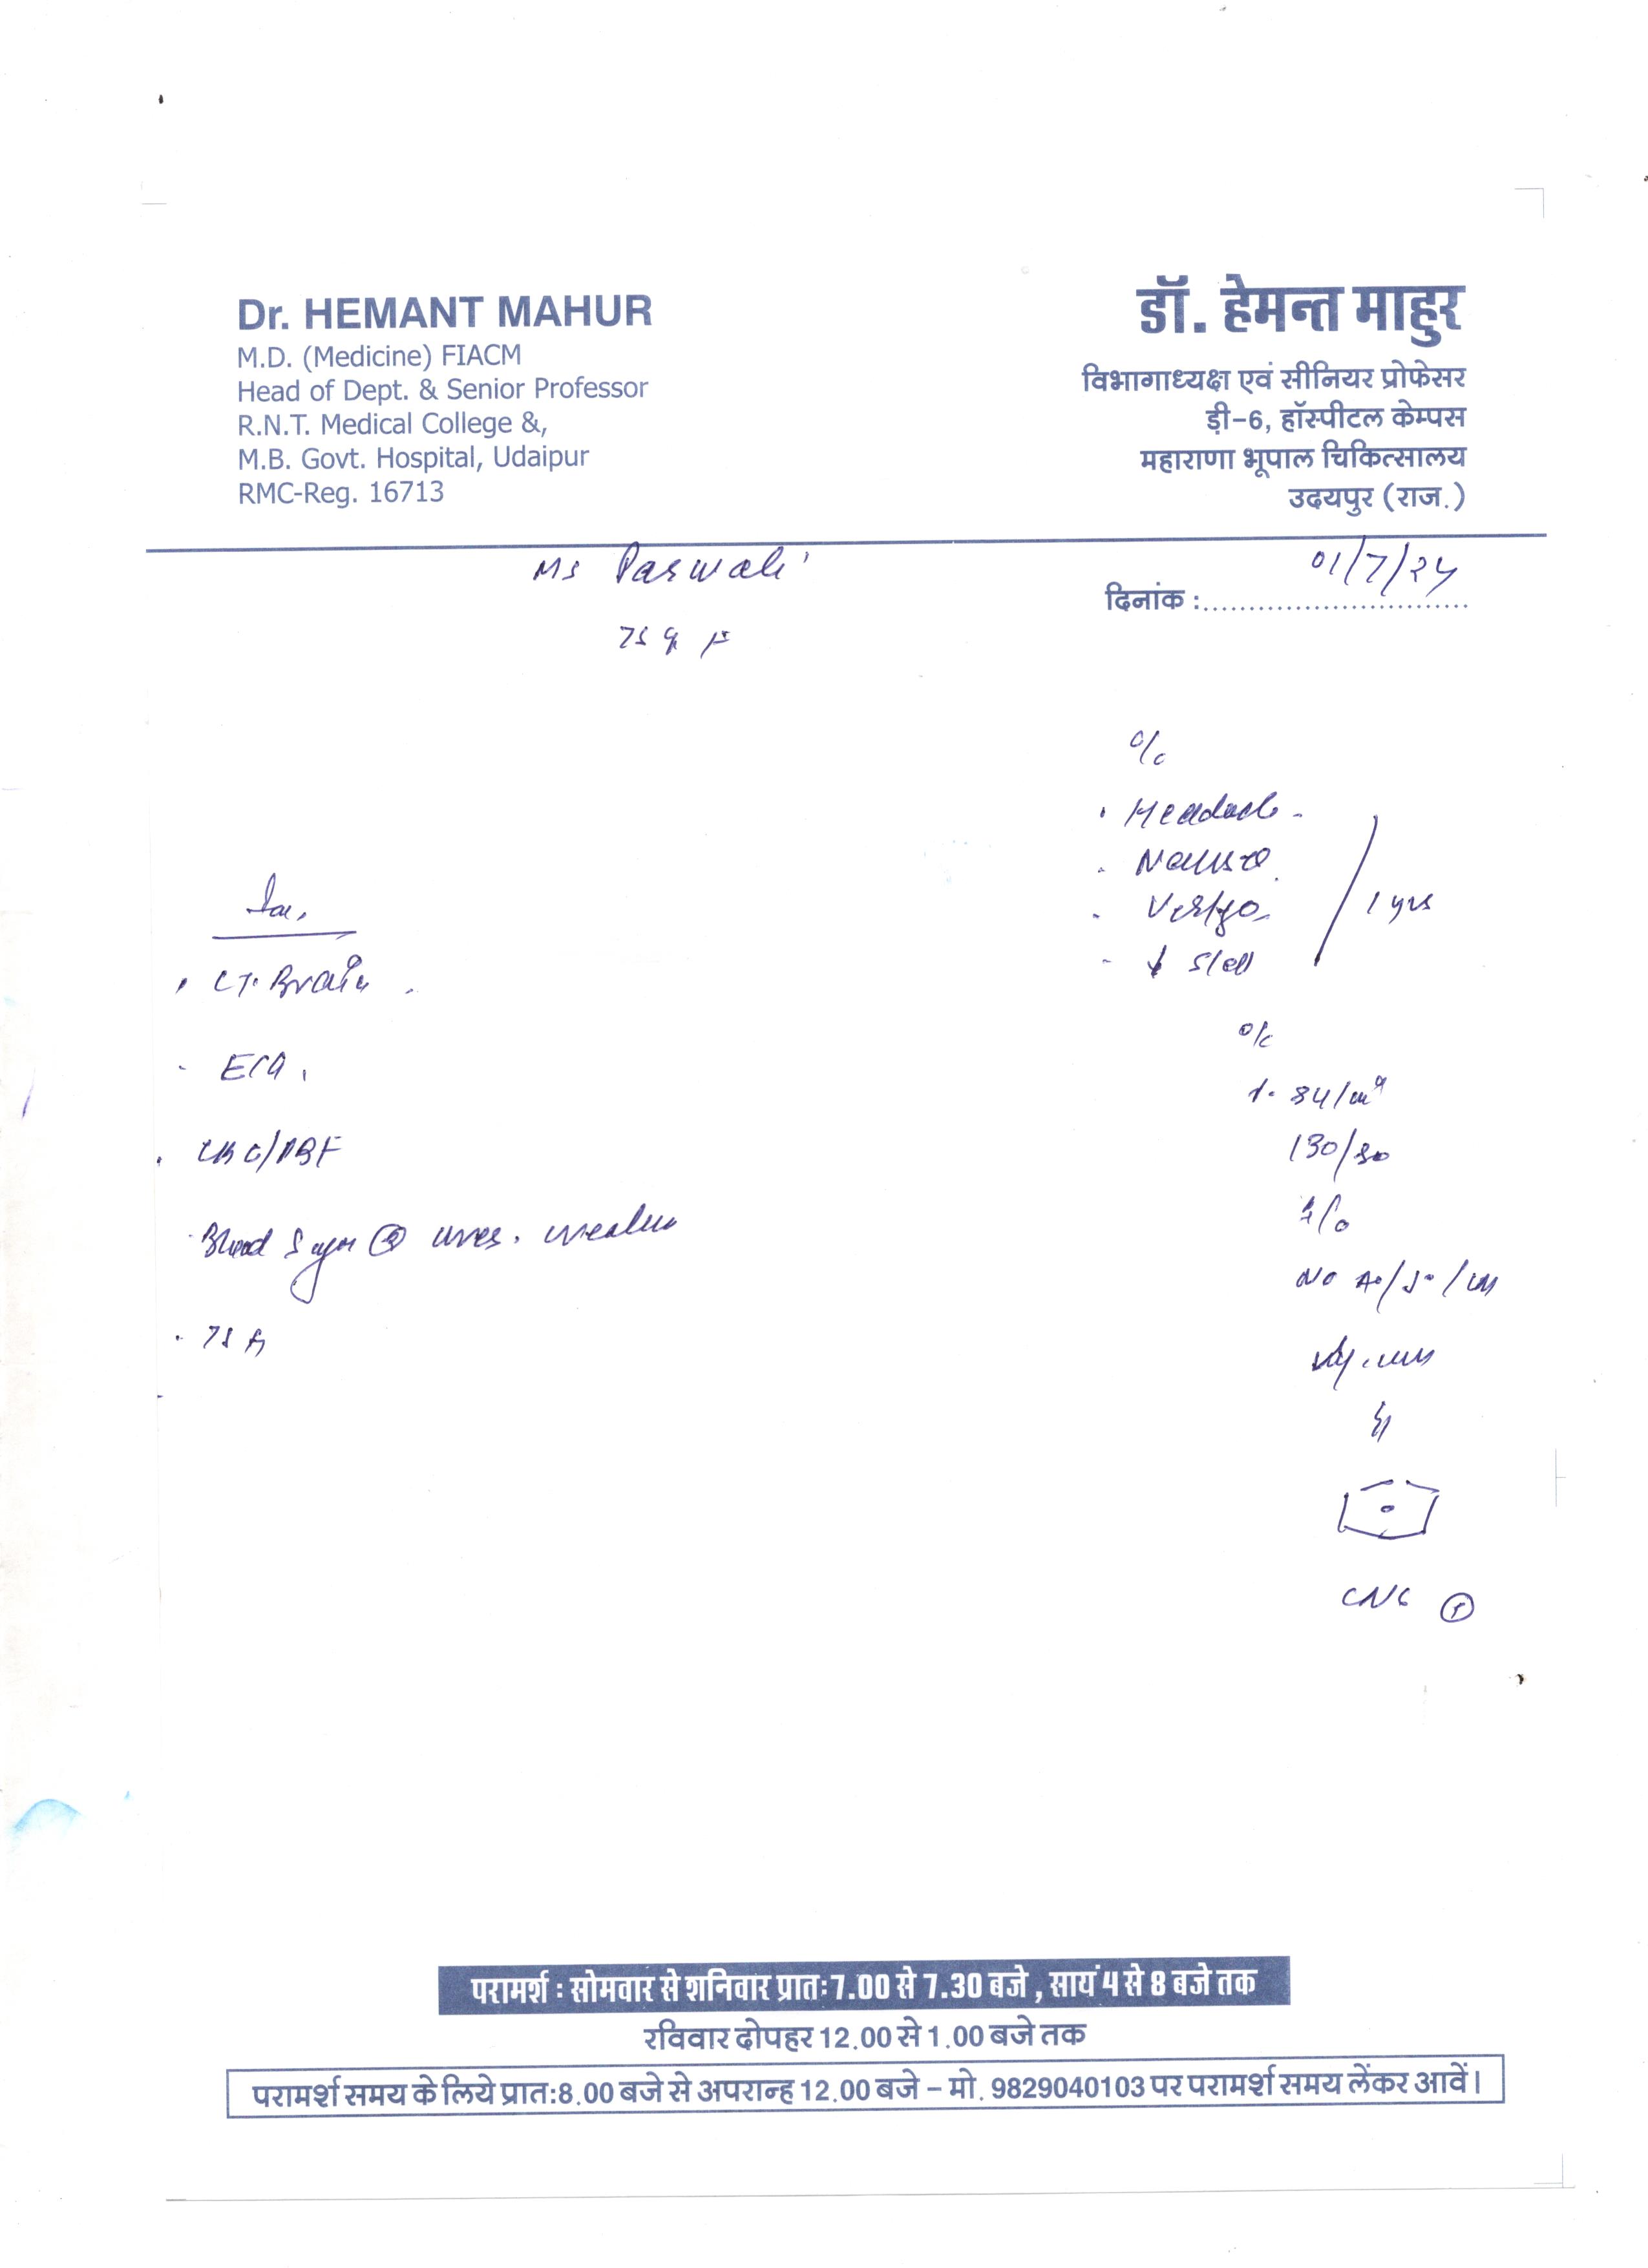 Dr. HEMANT MAHUR
M.D. (Medicine) FIACM
Head of Dept. & Senior Professor
R.N.T. Medical College &,
M.B. Govt. Hospital, Udaipur
RMC-Reg. 16713
डॉ. हेमन्त माहुर
विभागाध्यक्ष एवं सीनियर प्रोफेसर
ड़ी-6, हॉस्पीटल केम्पस
महाराणा भूपाल चिकित्सालय
उदयपुर (राज.)
Ms
01/7/24
दिनांक :..............................
75 F
c/o
Headache
Nausea
Vertigo
↓ Sleep
1 yrs
Inv.
CT. Brain
ECG
CBC/PBF
Blood Sugar
o/e
84/
130/80
NO
CNS
परामर्श : सोमवार से शनिवार प्रातः7.00 से 7.30 बजे , सायं 4 से 8 बजे तक
रविवार दोपहर 12.00 से 1.00 बजे तक
परामर्श समय के लिये प्रात:8.00 बजे से अपरान्ह 12.00 बजे – मो. 9829040103 पर परामर्श समय लेंकर आवें।